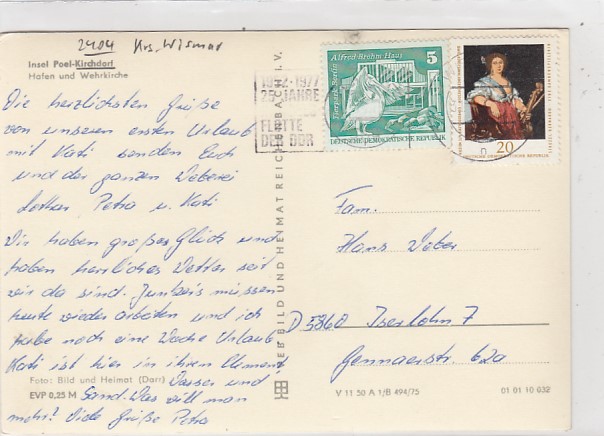 2404 Krs. Wismar
Insel Poel-Kirchdorf
Hafen und Wehrkirche
Die herzlichsten Grüße
von unseren ersten Urlaub
mit Kati senden Euch
und der ganzen Weberei
Lothar Petra u. Kati
Wir haben großes Glück und
haben herrliches Wetter seit
wir da sind. müssen
heute wieder arbeiten und ich
habe noch eine Woche Urlaub
Kati ist hier in ihrem Element
Wasser und
Sand. Was will man
mehr! Viele Grüße Petra
Foto: Bild und Heimat (Darr)
EVP 0,25 M
1952-1977
25 JAHRE
FLOTTE
DER DDR
Alfred-Brehm-Haus
5
Tierpark Berlin
DEUTSCHE DEMOKRATISCHE REPUBLIK
20
DEUTSCHE DEMOKRATISCHE REPUBLIK
VEB BILD UND HEIMAT REICHENBACH I. V.
Fam.
Hans Weber
D 5860 Iserlohn 7
Gennaerstr. 62a
V 11 50 A 1/B 494/75
01 01 10 032